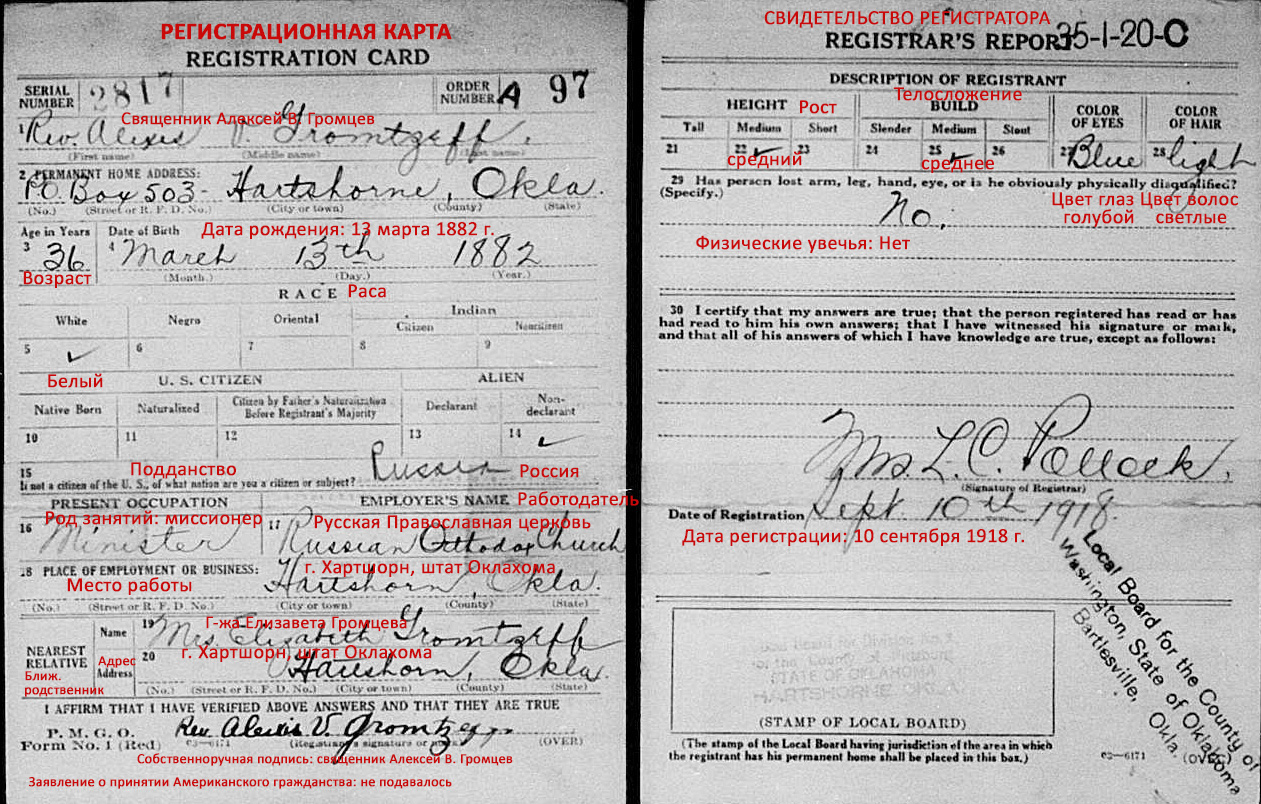 РЕГИСТРАЦИОННАЯ КАРТА
REGISTRATION CARD
SERIAL NUMBER 2817
ORDER NUMBER A 97
Священник Алексей В. Громцев
1 Rev. Alexis V. Gromtzeff.
(First name) (Middle name) (Last name)
2 PERMANENT HOME ADDRESS:
P.O. Box 503 - Hartshorne, Okla.
(No.) (Street or R. F. D. No.) (City or town) (County) (State)
Age in Years Date of Birth Дата рождения: 13 марта 1882 г.
3 36 4 March 13th 1882
Возраст (Month.) (Day.) (Year.)
RACE Раса
White Negro Oriental Indian
Citizen Noncitizen
5 ✓ 6 7 8 9
Белый U. S. CITIZEN ALIEN
Native Born Naturalized Citizen by Father's Naturalization Before Registrant's Majority Declarant Non-declarant
10 11 12 13 14 ✓
15 Подданство Russia Россия
If not a citizen of the U. S., of what nation are you a citizen or subject?
PRESENT OCCUPATION EMPLOYER'S NAME Работодатель
16 Род занятий: миссионер 17 Русская Православная церковь
Minister Russian Orthodox Church
18 PLACE OF EMPLOYMENT OR BUSINESS: г. Хартшорн, штат Оклахома
Место работы Hartshorn, Okla.
(No.) (Street or R. F. D. No.) (City or town) (County) (State)
19 Г-жа Елизавета Громцева
Name Mrs Elizabeth Gromtzeff
NEAREST RELATIVE
20 г. Хартшорн, штат Оклахома
Адрес Address Hartshorn, Okla.
Ближ. родственник
(No.) (Street or R. F. D. No.) (City or town) (County) (State)
I AFFIRM THAT I HAVE VERIFIED ABOVE ANSWERS AND THAT THEY ARE TRUE
P. M. G. O.
Form No. 1 (Red) 03—6171 Rev. Alexis V. Gromtzeff
(Registrant's signature or mark) (OVER)
Собственноручная подпись: священник Алексей В. Громцев
Заявление о принятии Американского гражданства: не подавалось
СВИДЕТЕЛЬСТВО РЕГИСТРАТОРА
REGISTRAR'S REPORT 35-1-20-C
DESCRIPTION OF REGISTRANT
HEIGHT Рост Телосложение BUILD COLOR OF EYES COLOR OF HAIR
Tall Medium Short Slender Medium Stout
21 22 ✓ 23 24 25 ✓ 26 27 Blue 28 light
средний среднее
29 Has person lost arm, leg, hand, eye, or is he obviously physically disqualified?
(Specify.) No. Цвет глаз Цвет волос
голубой светлые
Физические увечья: Нет
30 I certify that my answers are true; that the person registered has read or has
had read to him his own answers; that I have witnessed his signature or mark,
and that all of his answers of which I have knowledge are true, except as follows:
Mrs. L. C. Pollock.
(Signature of Registrar)
Date of Registration Sept. 10th 1918.
Дата регистрации: 10 сентября 1918 г.
Local Board for the County of
Washington, State of Oklahoma
Bartlesville, Okla.
(STAMP OF LOCAL BOARD)
(The stamp of the Local Board having jurisdiction of the area in which
the registrant has his permanent home shall be placed in this box.)
03—6171 (OVER)